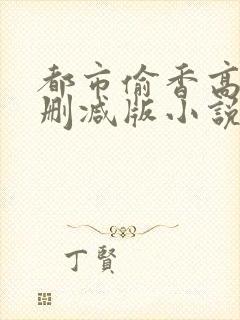 都市偷香高
删减版小說
丁賢